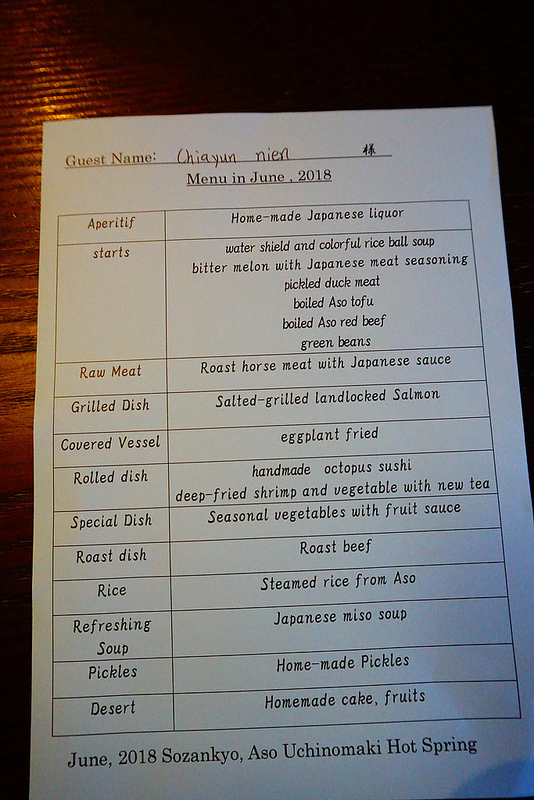 Guest Name: Chiayun nien 様
Menu in June , 2018
Aperitif Home-made Japanese liquor
starts water shield and colorful rice ball soup
bitter melon with Japanese meat seasoning
pickled duck meat
boiled Aso tofu
boiled Aso red beef
green beans
Raw Meat Roast horse meat with Japanese sauce
Grilled Dish Salted-grilled landlocked Salmon
Covered Vessel eggplant fried
Rolled dish handmade octopus sushi
deep-fried shrimp and vegetable with new tea
Special Dish Seasonal vegetables with fruit sauce
Roast dish Roast beef
Rice Steamed rice from Aso
Refreshing Japanese miso soup
Soup
Pickles Home-made Pickles
Desert Homemade cake, fruits
June, 2018 Sozankyo, Aso Uchinomaki Hot Spring